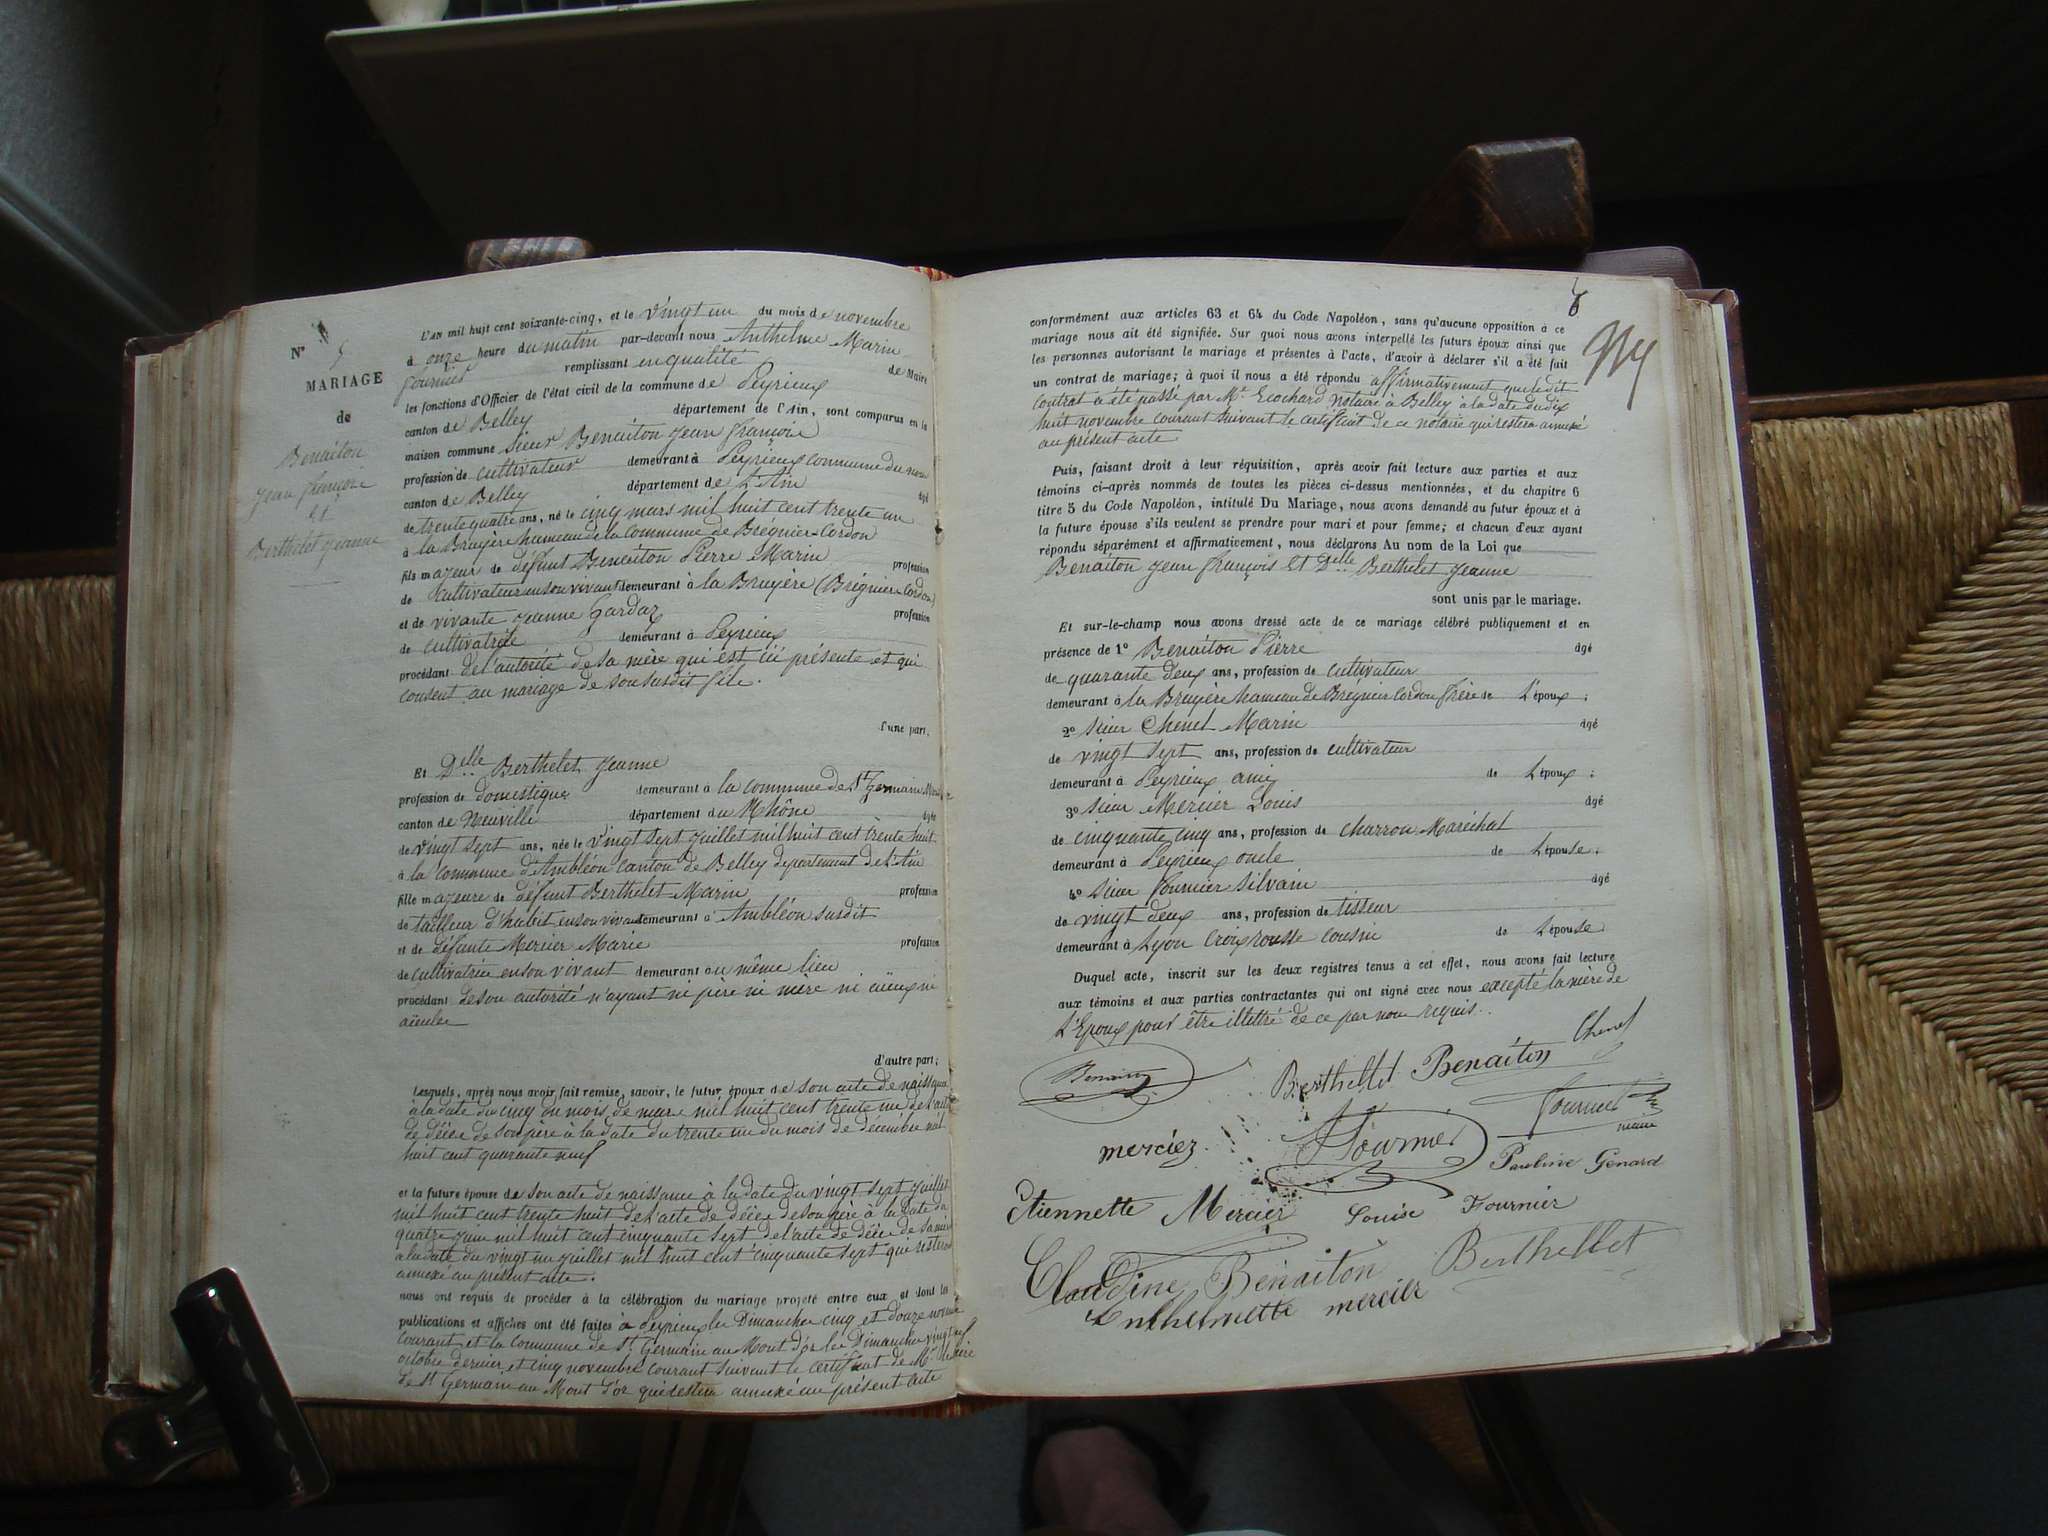 N° 5
MARIAGE
de
Benaiton
Jean françois
et
Berthelet Jeanne
L'AN mil huit cent soixante-cinq, et le vingt un du mois de novembre
à onze heure du matin par-devant nous Anthelme Marin
fournier remplissant en qualité de Maire
les fonctions d'Officier de l'état civil de la commune de Peyrieux
canton de Belley département de l'Ain, sont comparus en la
maison commune sieur Benaiton Jean françois
profession de cultivateur demeurant à Peyrieux commune du
canton de Belley département de L'Ain âgé
de trente quatre ans, né le cinq mars mil huit cent trente un
à la Bruyère hameau de la commune de Brégnier-Cordon
fils majeur de défunt Benaiton Pierre Marin profession
de cultivateur en son vivant demeurant à la Bruyère (Brégnier Cordon)
et de vivante Jeanne Gardaz profession
de cultivatrice demeurant à Peyrieux
procédant de l'autorité de sa mère qui est ici présente et qui
consent au mariage de son susdit fils.
d'une part,
Et Delle Berthelet Jeanne
profession de domestique demeurant à la commune de St Germain
canton de Neuville département du Rhône âgée
de vingt sept ans, née le vingt sept juillet mil huit cent trente huit
à la commune d'Ambléon canton de Belley département de L'Ain
fille majeure de défunt Berthelet Marin profession
de tailleur d'habit en son vivant demeurant à Ambléon susdit
et de défunte Mercier Marie profession
de cultivatrice en son vivant demeurant au même lieu
procédant de son autorité n'ayant ni père ni mère ni aïeux ni
aïeules
d'autre part;
Lesquels, après nous avoir fait remise, savoir, le futur époux de son acte de naissance
à la date du cinq du mois de mars mil huit cent trente un de l'acte
de décès de son père à la date du trente un du mois de décembre mil
huit cent quarante neuf
et la future épouse de son acte de naissance à la date du vingt sept juillet
mil huit cent trente huit de l'acte de décès de son père à la date du
quatre juin mil huit cent cinquante sept de l'acte de décès de sa mère
à la date du vingt un juillet mil huit cent cinquante sept qui resteront
annexé au présent acte.
nous ont requis de procéder à la célébration du mariage projeté entre eux et dont les
publications et affiches ont été faites à Peyrieux les Dimanches cinq et douze novembre
courant et la commune de St Germain au Mont d'or les Dimanches vingt neuf
octobre dernier et cinq novembre courant suivant le certificat de Mr le maire
de St Germain au Mont d'or qui restera annexé au présent acte
6
conformément aux articles 63 et 64 du Code Napoléon, sans qu'aucune opposition à ce
mariage nous ait été signifiée. Sur quoi nous avons interpellé les futurs époux ainsi que
les personnes autorisant le mariage et présentes à l'acte, d'avoir à déclarer s'il a été fait
un contrat de mariage; à quoi il nous a été répondu affirmativement que ledit
contrat a été passé par Mr Ecochard notaire à Belley à la date du dix
huit novembre courant suivant le certificat de ce notaire qui restera annexé
au présent acte
Puis, faisant droit à leur réquisition, après avoir fait lecture aux parties et aux
témoins ci-après nommés de toutes les pièces ci-dessus mentionnées, et du chapitre 6
titre 5 du Code Napoléon, intitulé Du Mariage, nous avons demandé au futur époux et à
la future épouse s'ils veulent se prendre pour mari et pour femme; et chacun d'eux ayant
répondu séparément et affirmativement, nous déclarons Au nom de la Loi que
Benaiton Jean françois et Delle Berthelet Jeanne
sont unis par le mariage.
Et sur-le-champ nous avons dressé acte de ce mariage célébré publiquement et en
présence de 1° Benaiton Pierre âgé
de quarante deux ans, profession de cultivateur
demeurant à la Bruyère hameau de Brégnier Cordon frère de L'époux;
2° sieur Chenet Marin âgé
de vingt sept ans, profession de cultivateur
demeurant à Peyrieux ami de L'époux;
3° sieur Mercier Louis âgé
de cinquante cinq ans, profession de charron Maréchal
demeurant à Peyrieux oncle de L'épouse;
4° sieur fournier silvain âgé
de vingt deux ans, profession de tisseur
demeurant à Lyon Croix rousse cousin de L'épouse
Duquel acte, inscrit sur les deux registres tenus à cet effet, nous avons fait lecture
aux témoins et aux parties contractantes qui ont signé avec nous excepté la mère de
L'époux pour être illettré de ce par nous requis.
Benaiton Berthellet Benaiton Chenet
mercier Fournier Fournier
maire
Pauline Genard
Etiennette Mercier Louise Fournier
Claudine Benaiton Berthellet
Enthelmette mercier